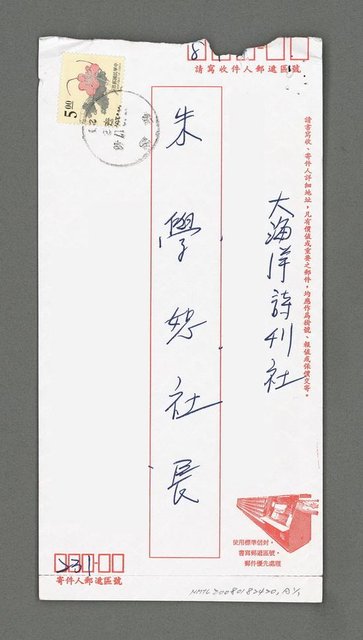 8
請寫收件人郵遞區號
5.00
請書寫收、寄件人詳細地址,凡有價值或重要之郵件,均應作為掛號、報值或保價交寄。
大海洋詩刊社
朱學恕社長
使用標準信封,
書寫郵遞區號,
郵件優先處理
231
寄件人郵遞區號